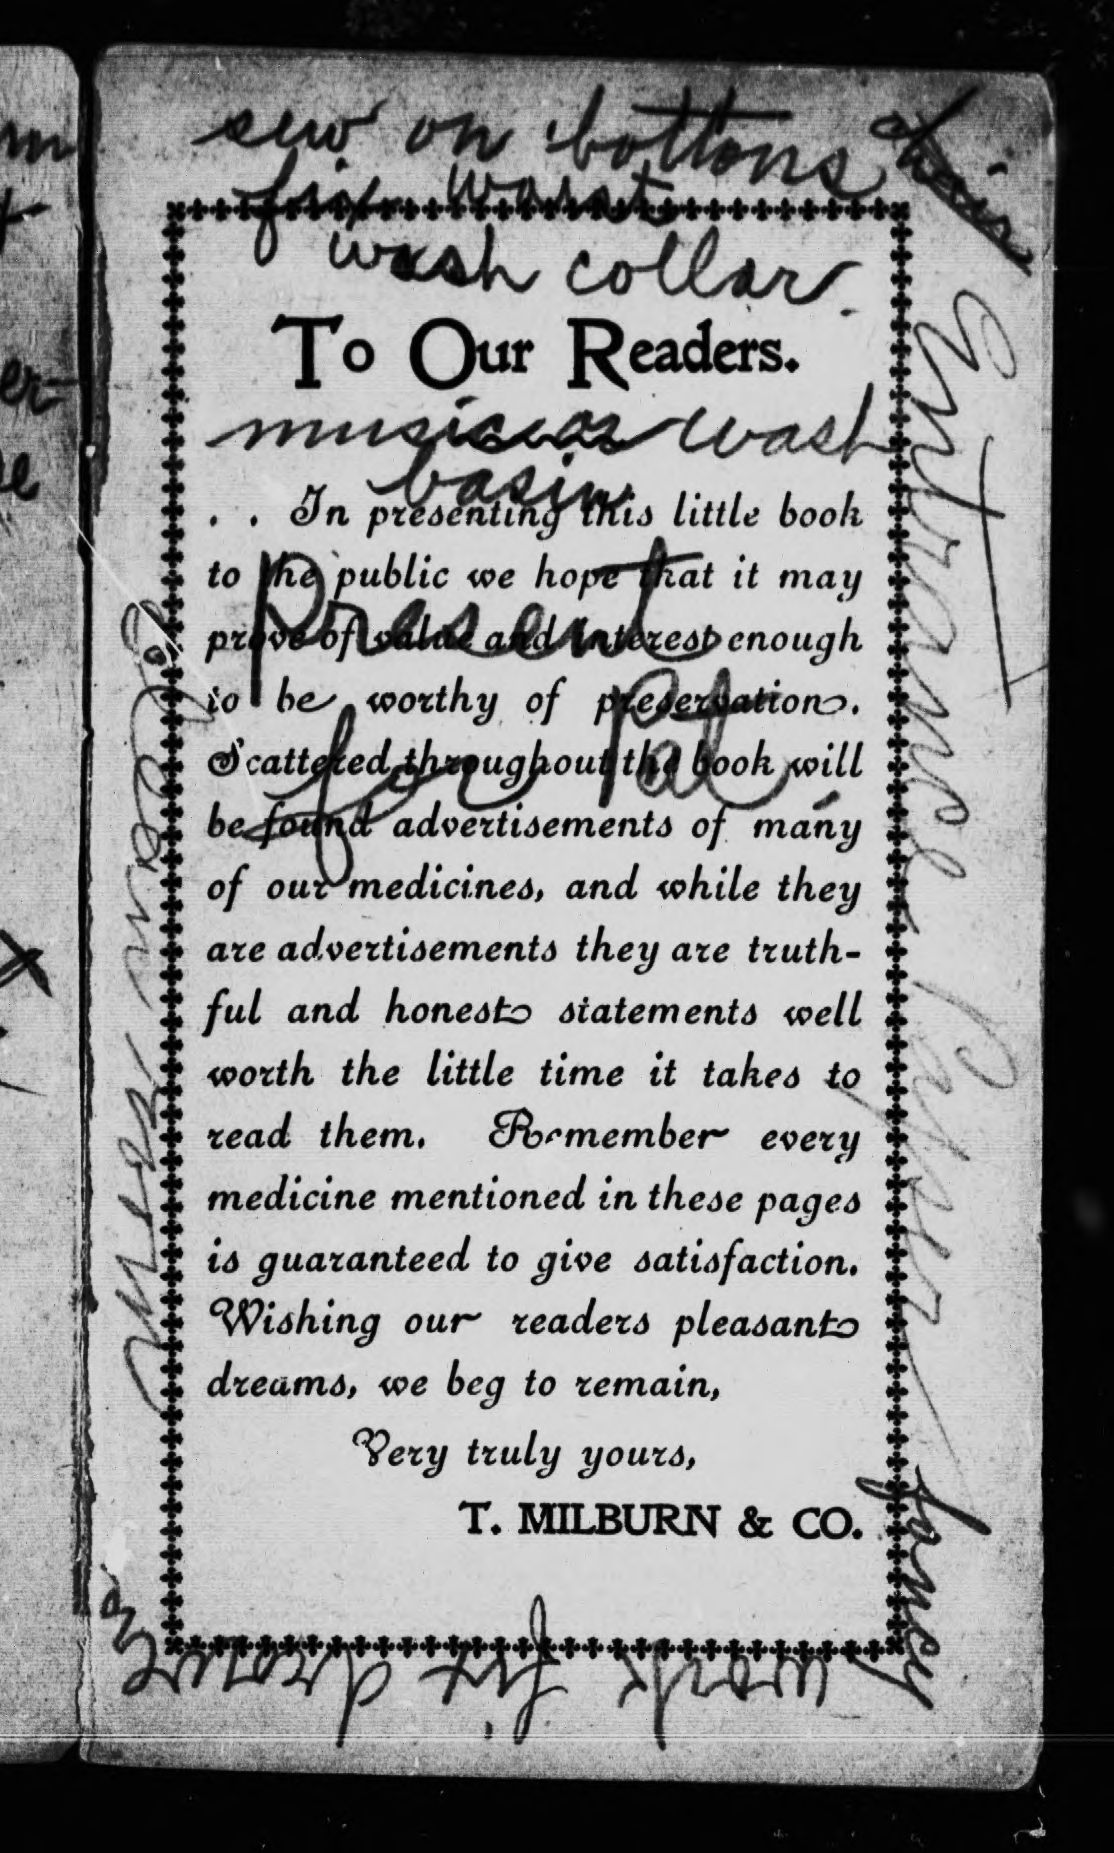 sew on bottons
hair
fix waist
wash collar
To Our Readers.
music or wash
basin
. . In presenting this little book
to the public we hope that it may
prove of value and interest enough
to be worthy of preservation.
Scattered throughout the book will
be found advertisements of many
of our medicines, and while they
are advertisements they are truth-
ful and honest statements well
worth the little time it takes to
read them. Remember every
medicine mentioned in these pages
is guaranteed to give satisfaction.
Wishing our readers pleasant
dreams, we beg to remain,
Very truly yours,
T. MILBURN & CO.
Present
for Pat
Entrance Paper
fancy
work